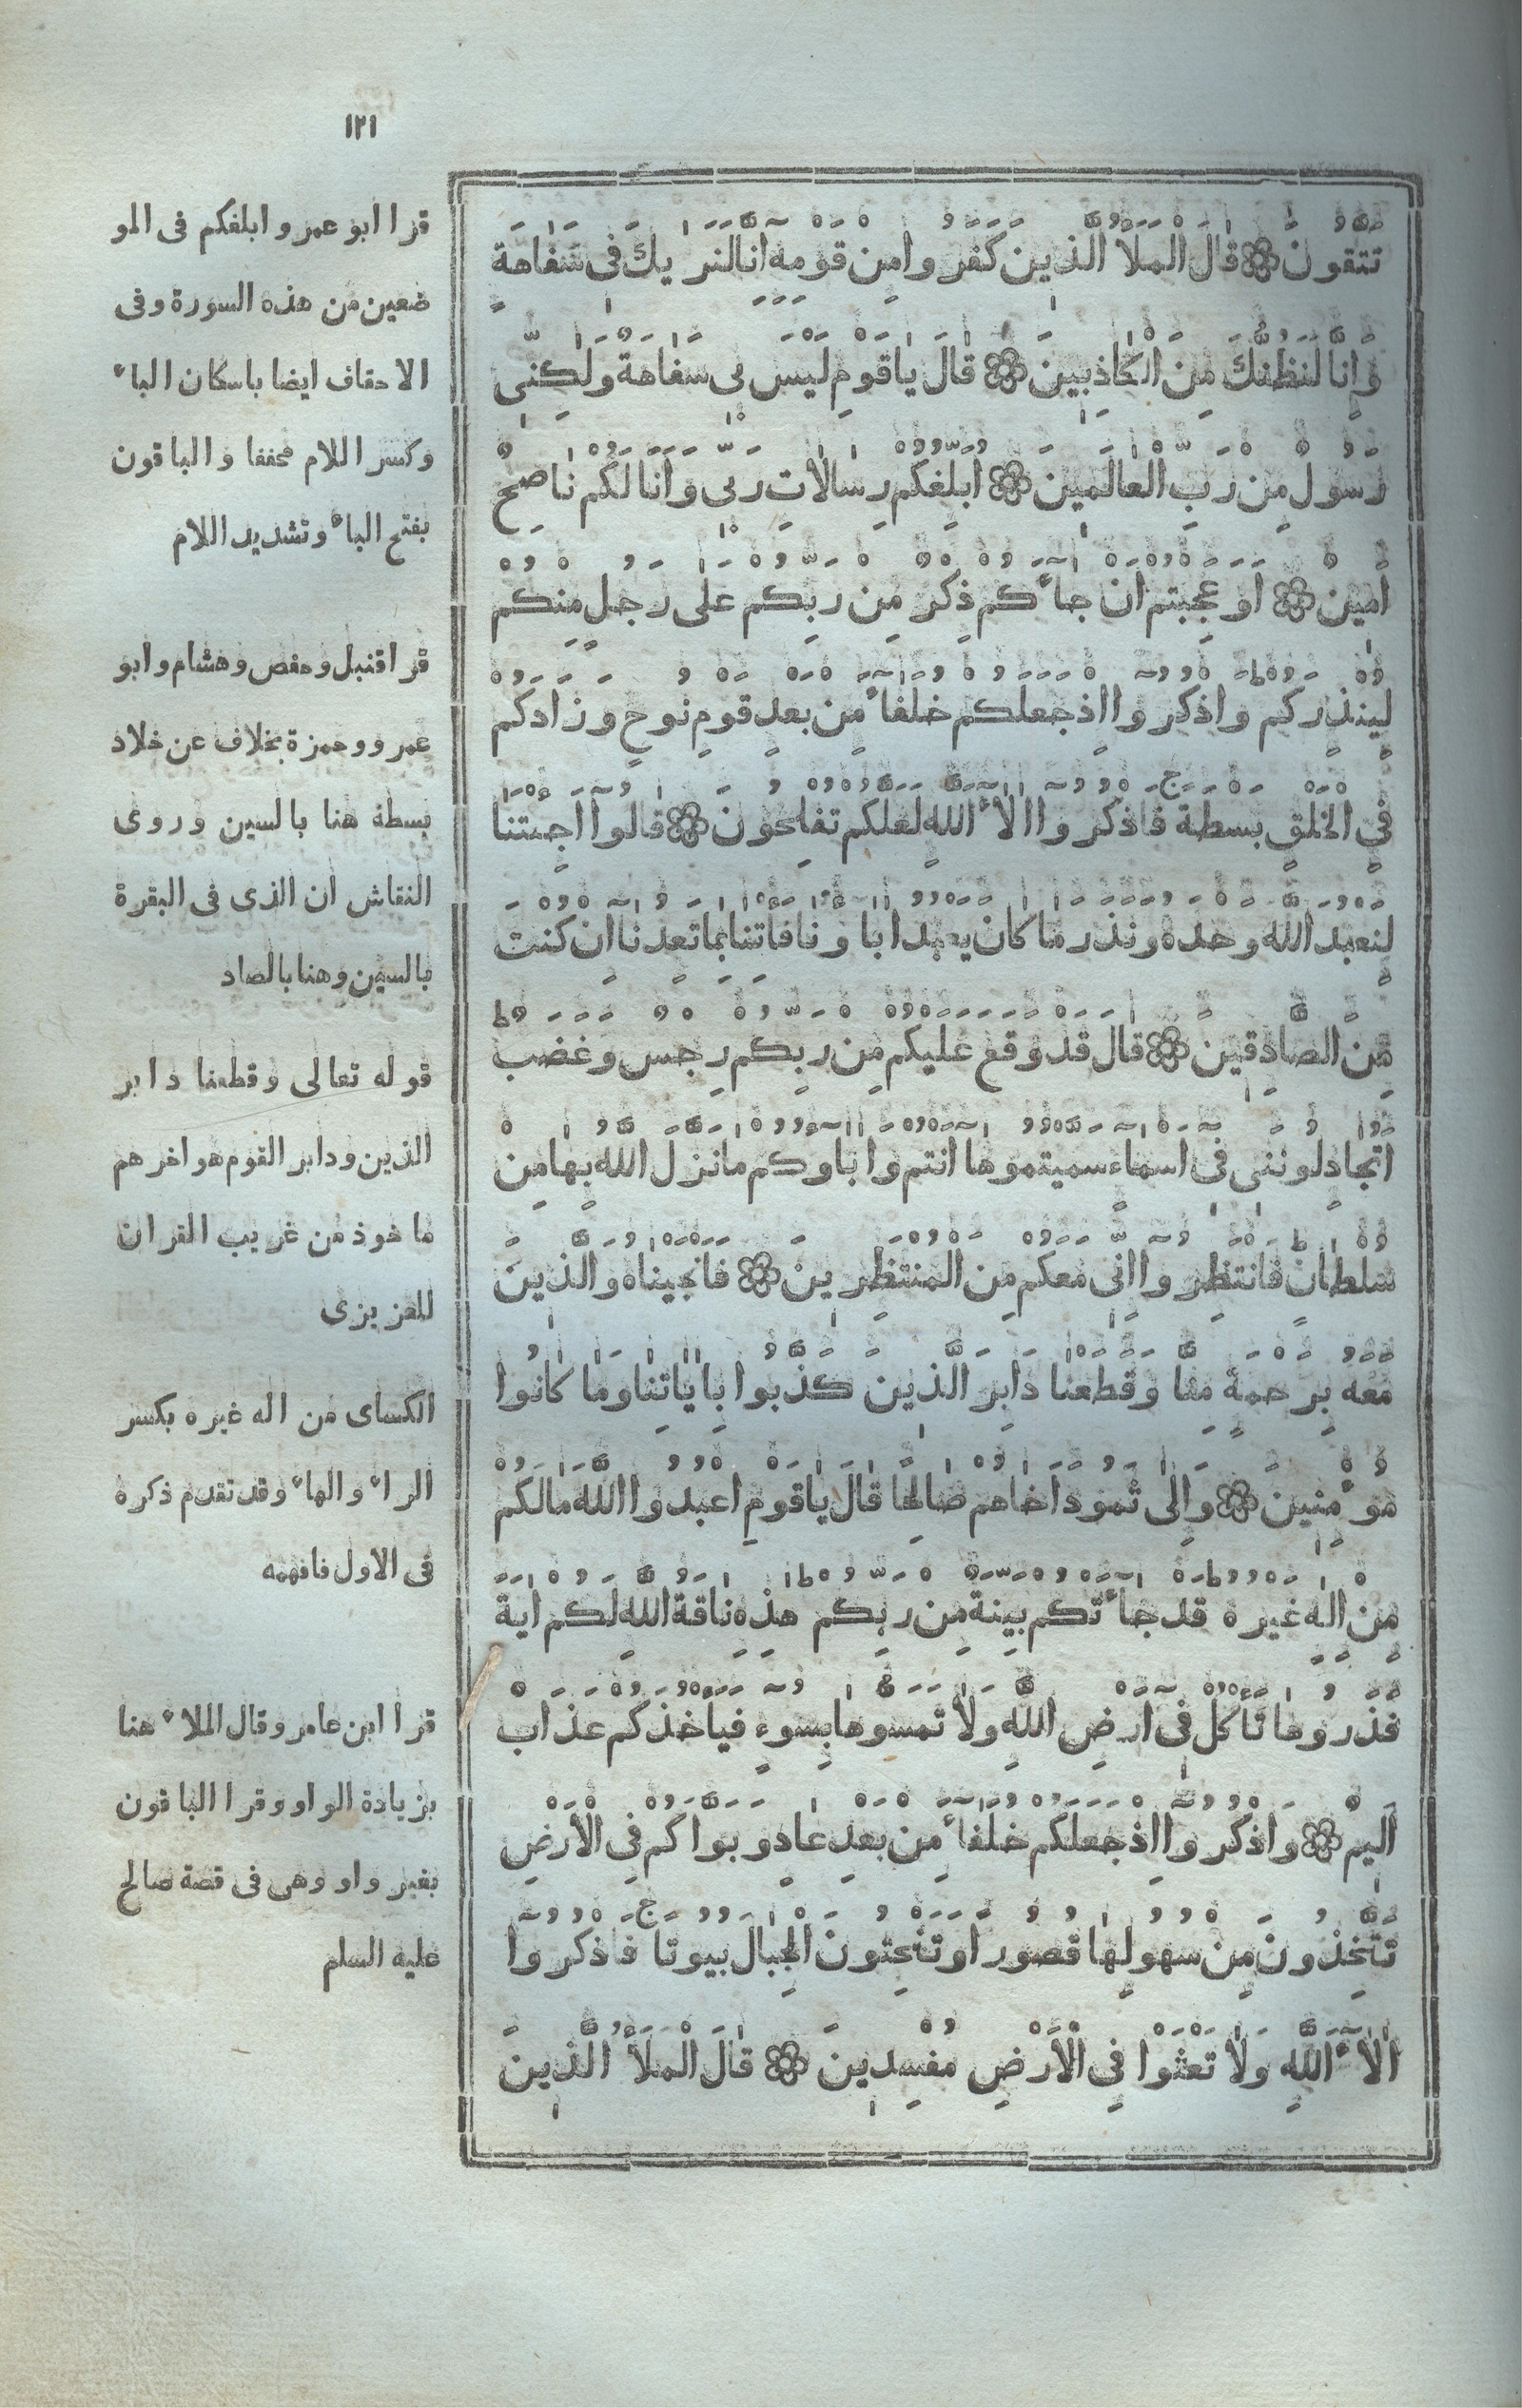 ١٢١
تَتَّقُونَ ۞ قَالَ الْمَلَأُ الَّذِينَ كَفَرُوا مِنْ قَوْمِهِ اِنَّا لَنَرٰيكَ فِى سَفَاهَةٍ
وَاِنَّا لَنَظُنُّكَ مِنَ الْكَاذِبِينَ ۞ قَالَ يَاقَوْمِ لَيْسَ بِى سَفَاهَةٌ وَلٰكِنِّى
رَسُولٌ مِنْ رَبِّ الْعَالَمِينَ ۞ اُبَلِّغُكُمْ رِسَالَاتِ رَبِّى وَاَنَا لَكُمْ نَاصِحٌ
اَمِينٌ ۞ اَوَعَجِبْتُمْ اَنْ جَاءَكُمْ ذِكْرٌ مِنْ رَبِّكُمْ عَلٰى رَجُلٍ مِنْكُمْ
لِيُنْذِرَكُمْ وَاذْكُرُوا اِذْ جَعَلَكُمْ خُلَفَاءَ مِنْ بَعْدِ قَوْمِ نُوحٍ وَزَادَكُمْ
فِى الْخَلْقِ بَسْطَةً ج فَاذْكُرُوا اٰلَاءَ اللّٰهِ لَعَلَّكُمْ تُفْلِحُونَ ۞ قَالُوا اَجِئْتَنَا
لِنَعْبُدَ اللّٰهَ وَحْدَهُ وَنَذَرَ مَا كَانَ يَعْبُدُ اٰبَاوُنَا فَاْتِنَا بِمَا تَعِدُنَا اِنْ كُنْتَ
مِنَ الصَّادِقِينَ ۞ قَالَ قَدْ وَقَعَ عَلَيْكُمْ مِنْ رَبِّكُمْ رِجْسٌ وَغَضَبٌ ط
اَتُجَادِلُونَنِى فِى اَسْمَاءٍ سَمَّيْتُمُوهَا اَنْتُمْ وَاٰبَاوُكُمْ مَا نَزَّلَ اللّٰهُ بِهَا مِنْ
سُلْطَانٍ ط فَانْتَظِرُوا اِنِّى مَعَكُمْ مِنَ الْمُنْتَظِرِينَ ۞ فَاَنْجَيْنَاهُ وَالَّذِينَ
مَعَهُ بِرَحْمَةٍ مِنَّا وَقَطَعْنَا دَابِرَ الَّذِينَ كَذَّبُوا بِاٰيَاتِنَا وَمَا كَانُوا
مُؤْمِنِينَ ۞ وَاِلٰى ثَمُودَ اَخَاهُمْ صَالِحًا قَالَ يَاقَوْمِ اعْبُدُوا اللّٰهَ مَا لَكُمْ
مِنْ اِلٰهٍ غَيْرُهُ ط قَدْ جَاءَتْكُمْ بَيِّنَةٌ مِنْ رَبِّكُمْ ط هٰذِهِ نَاقَةُ اللّٰهِ لَكُمْ اٰيَةً
فَذَرُوهَا تَاْكُلْ فِى اَرْضِ اللّٰهِ وَلَا تَمَسُّوهَا بِسُوءٍ فَيَاْخُذَكُمْ عَذَابٌ
اَلِيمٌ ۞ وَاذْكُرُوا اِذْ جَعَلَكُمْ خُلَفَاءَ مِنْ بَعْدِ عَادٍ وَبَوَّاَكُمْ فِى الْاَرْضِ
تَتَّخِذُونَ مِنْ سُهُولِهَا قُصُورًا وَتَنْحِتُونَ الْجِبَالَ بُيُوتًا ج فَاذْكُرُوا
اٰلَاءَ اللّٰهِ وَلَا تَعْثَوْا فِى الْاَرْضِ مُفْسِدِينَ ۞ قَالَ الْمَلَأُ الَّذِينَ
قرا ابو عمر و ابلغكم فى المو
ضعين من هذه السورة وفى
الاحقاف ايضا باسكان الباء
وكسر اللام مخففا والباقون
بفتح الباء وتشديد اللام
قرا قنبل وحفص وهشام وابو
عمرو وحمزة بخلاف عن خلاد
بسطة هنا بالسين وروى
النقاش ان الذى فى البقرة
بالسين وهنا بالصاد
قوله تعالى وقطعنا دابر
الذين ودابر القوم هو اخرهم
ماخوذ من غريب القران
للعزيزى
الكساى من اله غيره بكسر
الراء والهاء وقد تقدم ذكره
فى الاول فافهمه
قرا ابن عامر وقال الملاء هنا
بزيادة الواو وقرا الباقون
بغير واو وهى فى قصة صالح
عليه السلم